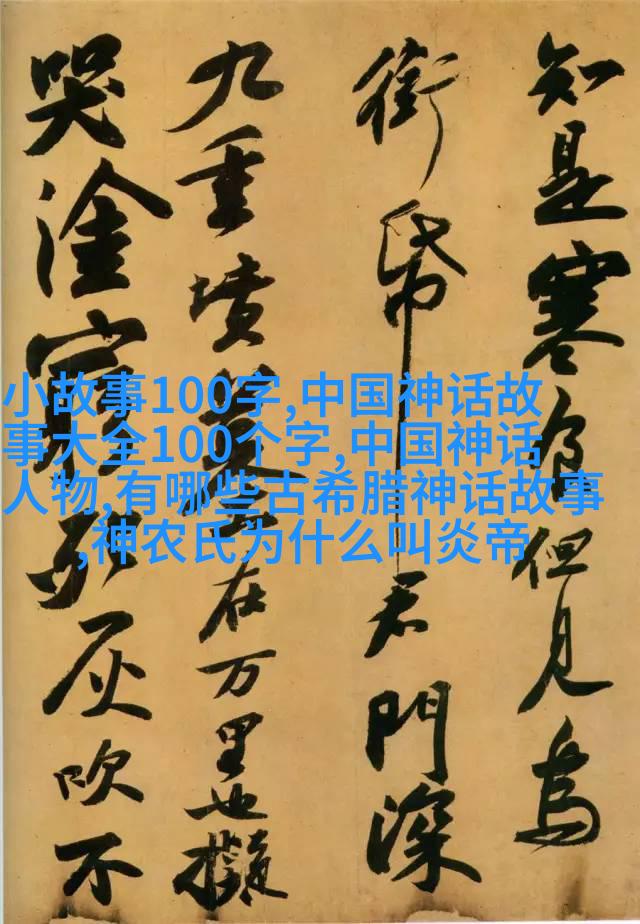 知是寒食但見烏
銜帋君門深
九重墳墓在万里也擬
哭塗窮死灰吹不
小故事100字,中国神话故
事大全100个字,中国神话
人物,有哪些古希腊神话故事
,神农氏为什么叫炎帝